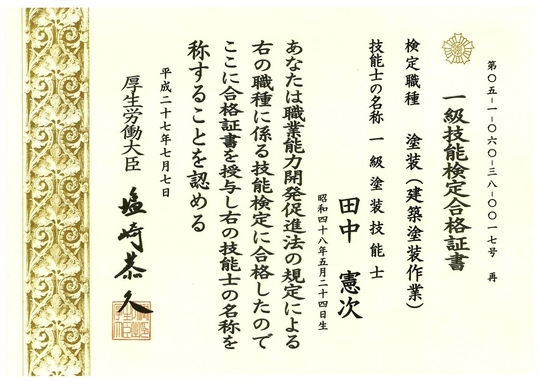 第〇五-一-〇六〇-三八-〇〇一七号 再
一級技能検定合格証書
検定職種 塗装(建築塗装作業)
技能士の名称 一級塗装技能士
田中 憲次
昭和四十八年五月二十四日生
あなたは職業能力開発促進法の規定による
右の職種に係る技能検定に合格したので
ここに合格証書を授与し右の技能士の名称を
称することを認める
平成二十七年七月七日
厚生労働大臣 塩崎恭久